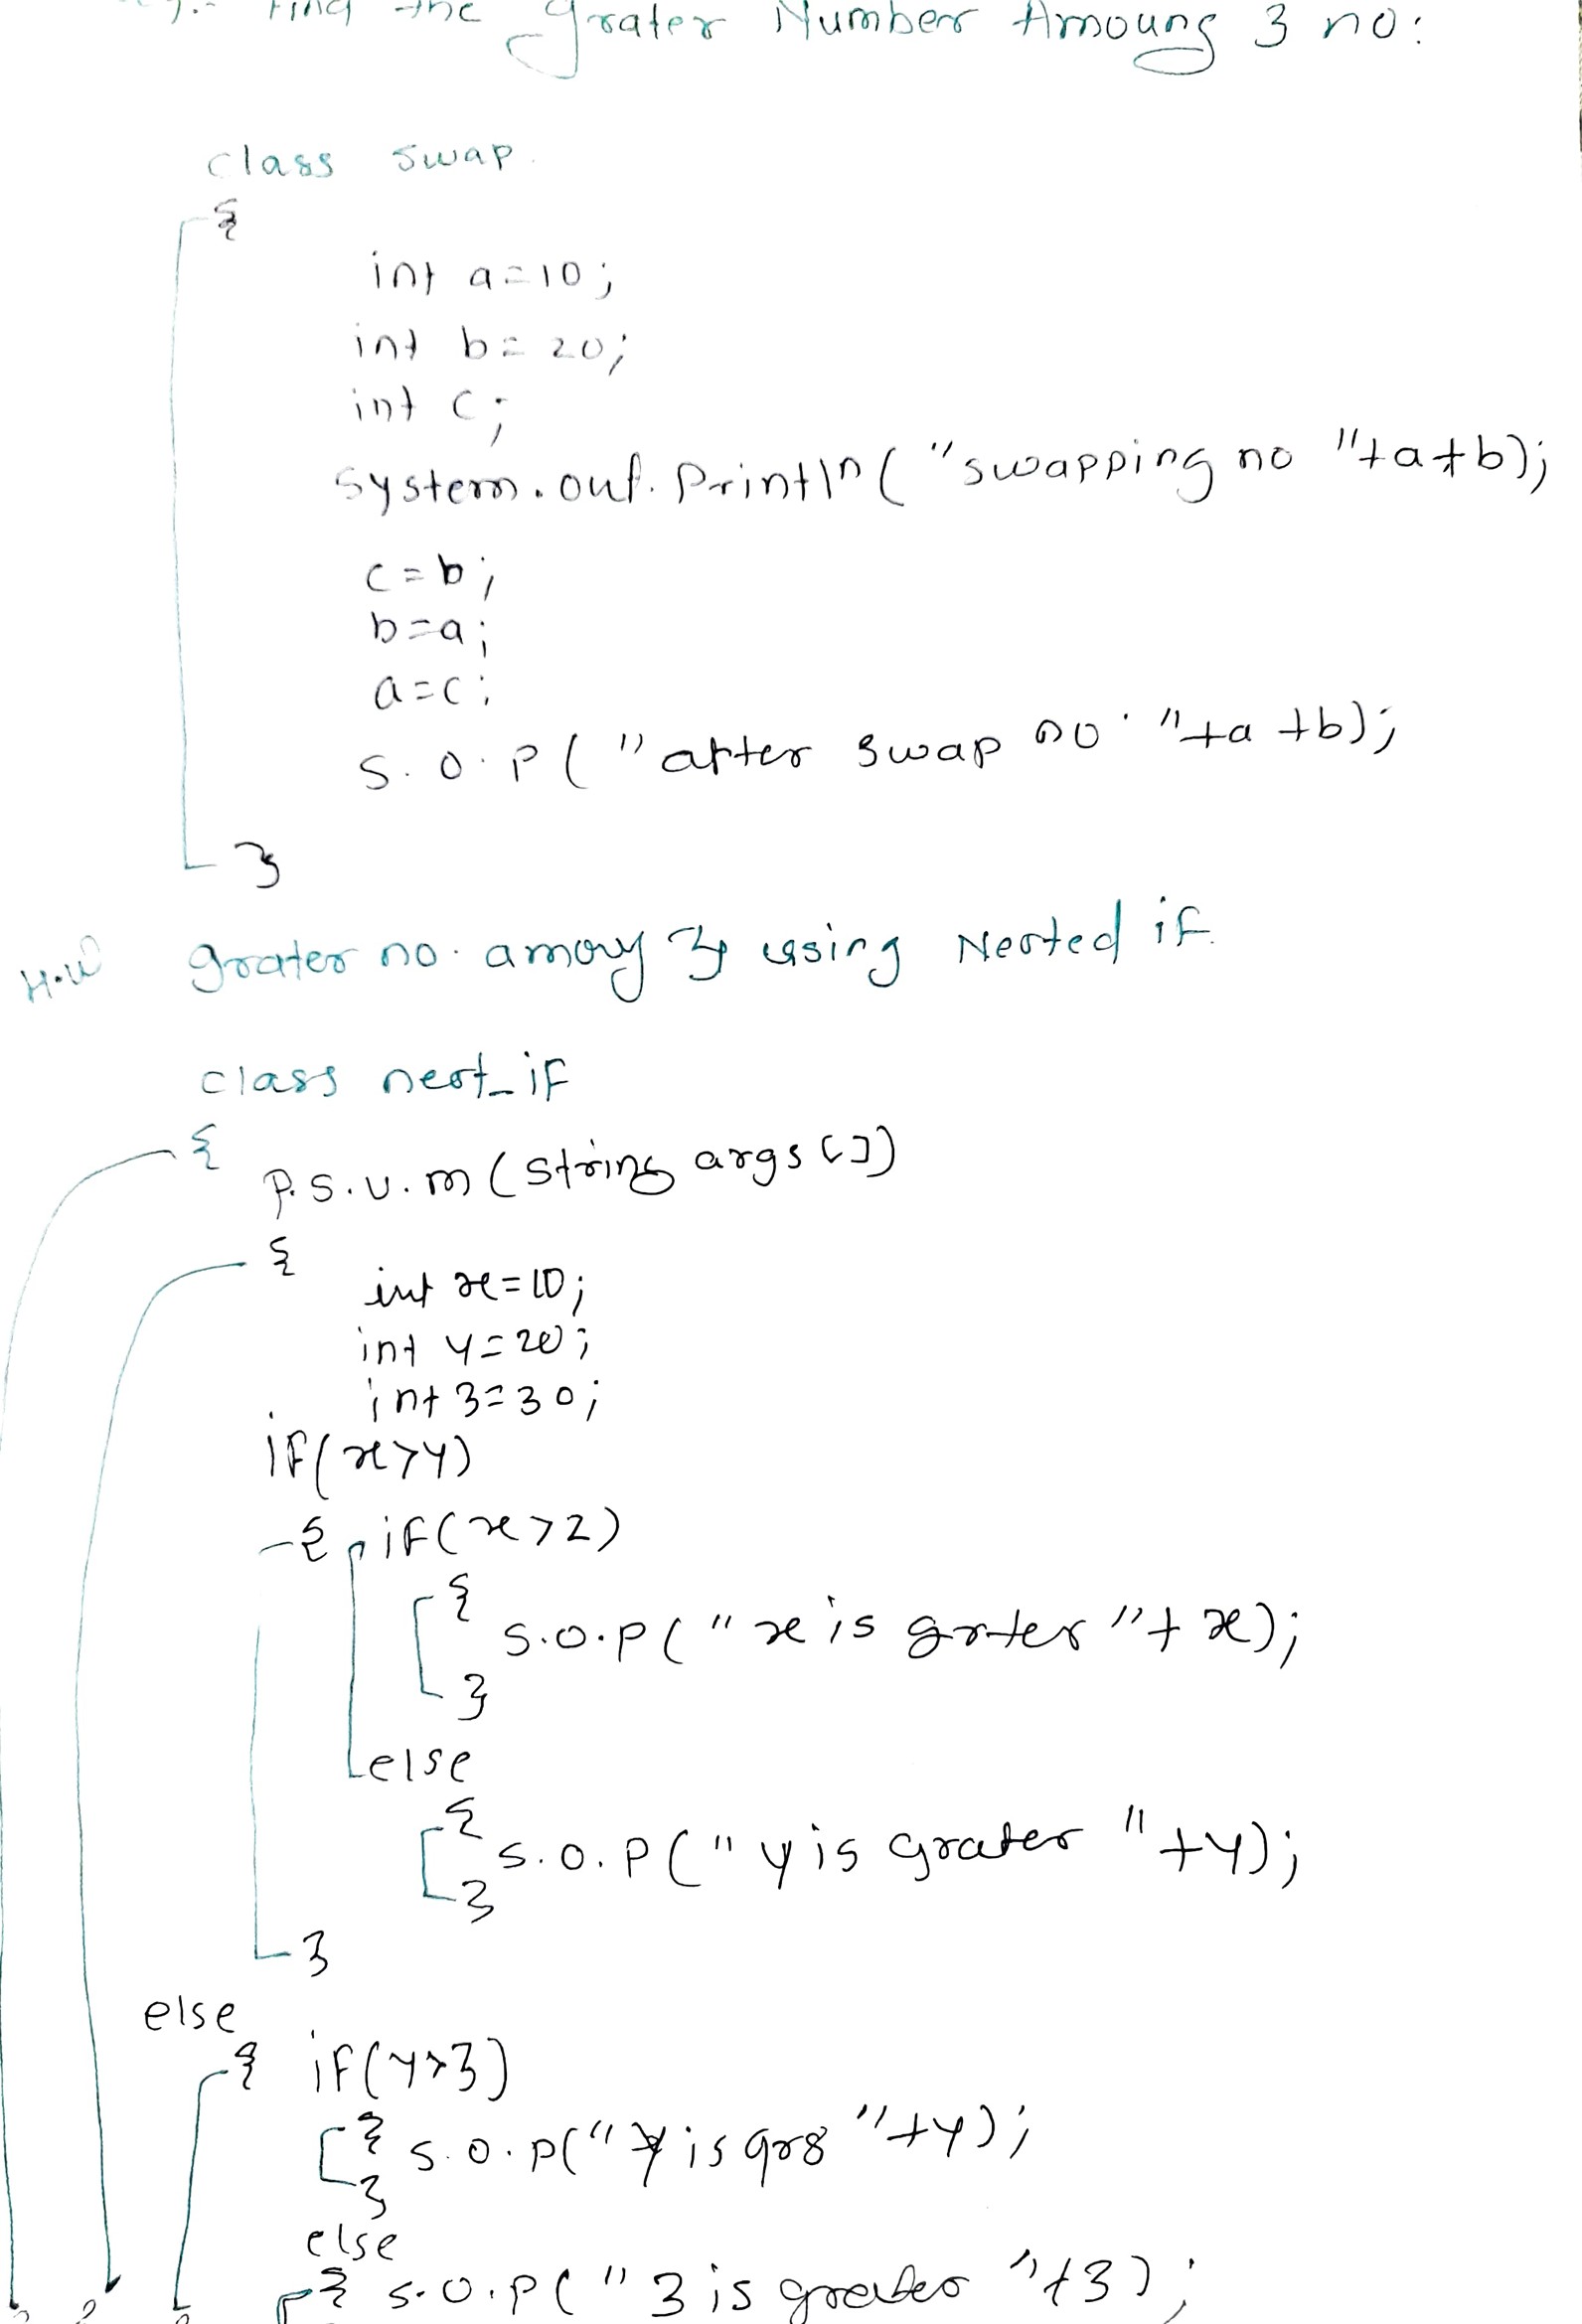 Find the Grater Number Amoung 3 no:
class swap.
{
int a=10;
int b=20;
int c;
system.out.Println("swapping no "+a+b);
c=b;
b=a;
a=c;
S.O.P("after swap no. "+a+b);
}
H.W grater no. among 3 using Nested if.
class nest_if
{
P.S.V.m(string args[])
{
int x=10;
int y=20;
int z=30;
if(x>y)
{ if(x>z)
{
S.O.P("x is grter "+x);
}
else
{
S.O.P("y is grater "+y);
}
}
else
{ if(y>z)
{ S.O.P("y is gr8 "+y);
}
else
{ S.O.P("z is greater "+z);